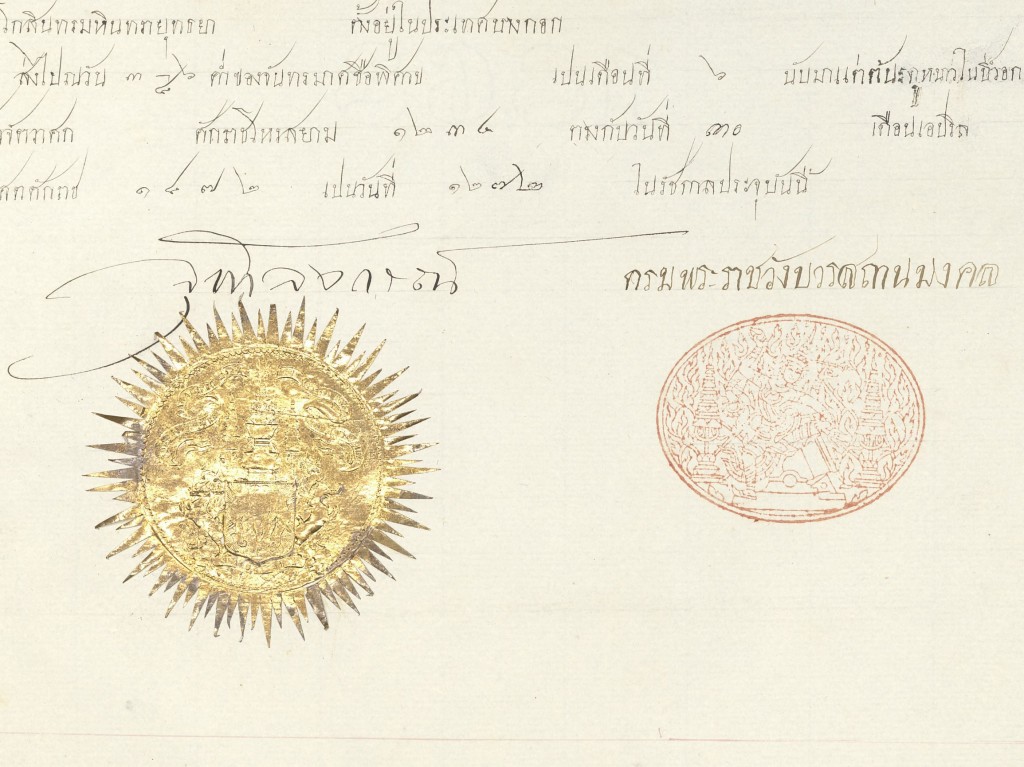 โกสินทรมหินทรายุทธยา ตั้งอยู่ในประเทศบางกอก
ส่งไปณวัน ๓ ค่ำของจันทรมาศชื่อพิศาข เปนเดือนที่ ๖ นับมาแต่ต้นระดูหนาวในปีวอก
จัตวาศก ศักราชโหรสยาม ๑๒๓๔ ตรงกับวันที่ ๓๐ เดือนเอปริล
ศักราช ๑๘๗๒ เปนวันที่ ๑๒๗๒ ในรัชกาลประจุบันนี้
จุฬาลงกรณ์
กรมพระราชวังบวรสถานมงคล